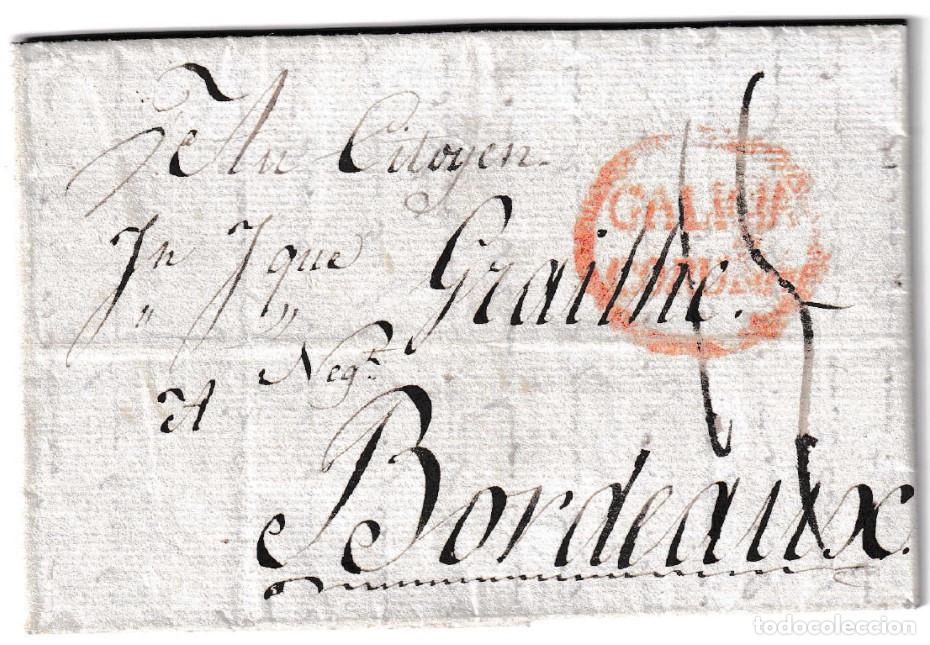 Au Citoyen
Jn Jque Grailhe.
Negt
A
Bordeaux.
GALICIA
todocoleccion